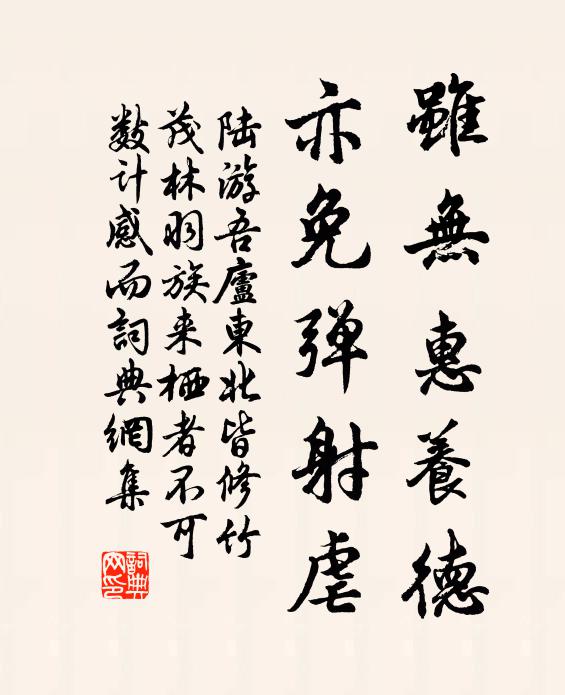 雖無惠養德
亦免弹射虐
陆游吾廬東北皆修竹
茂林羽族来栖者不可
数计感而詞典網集
詞典网印